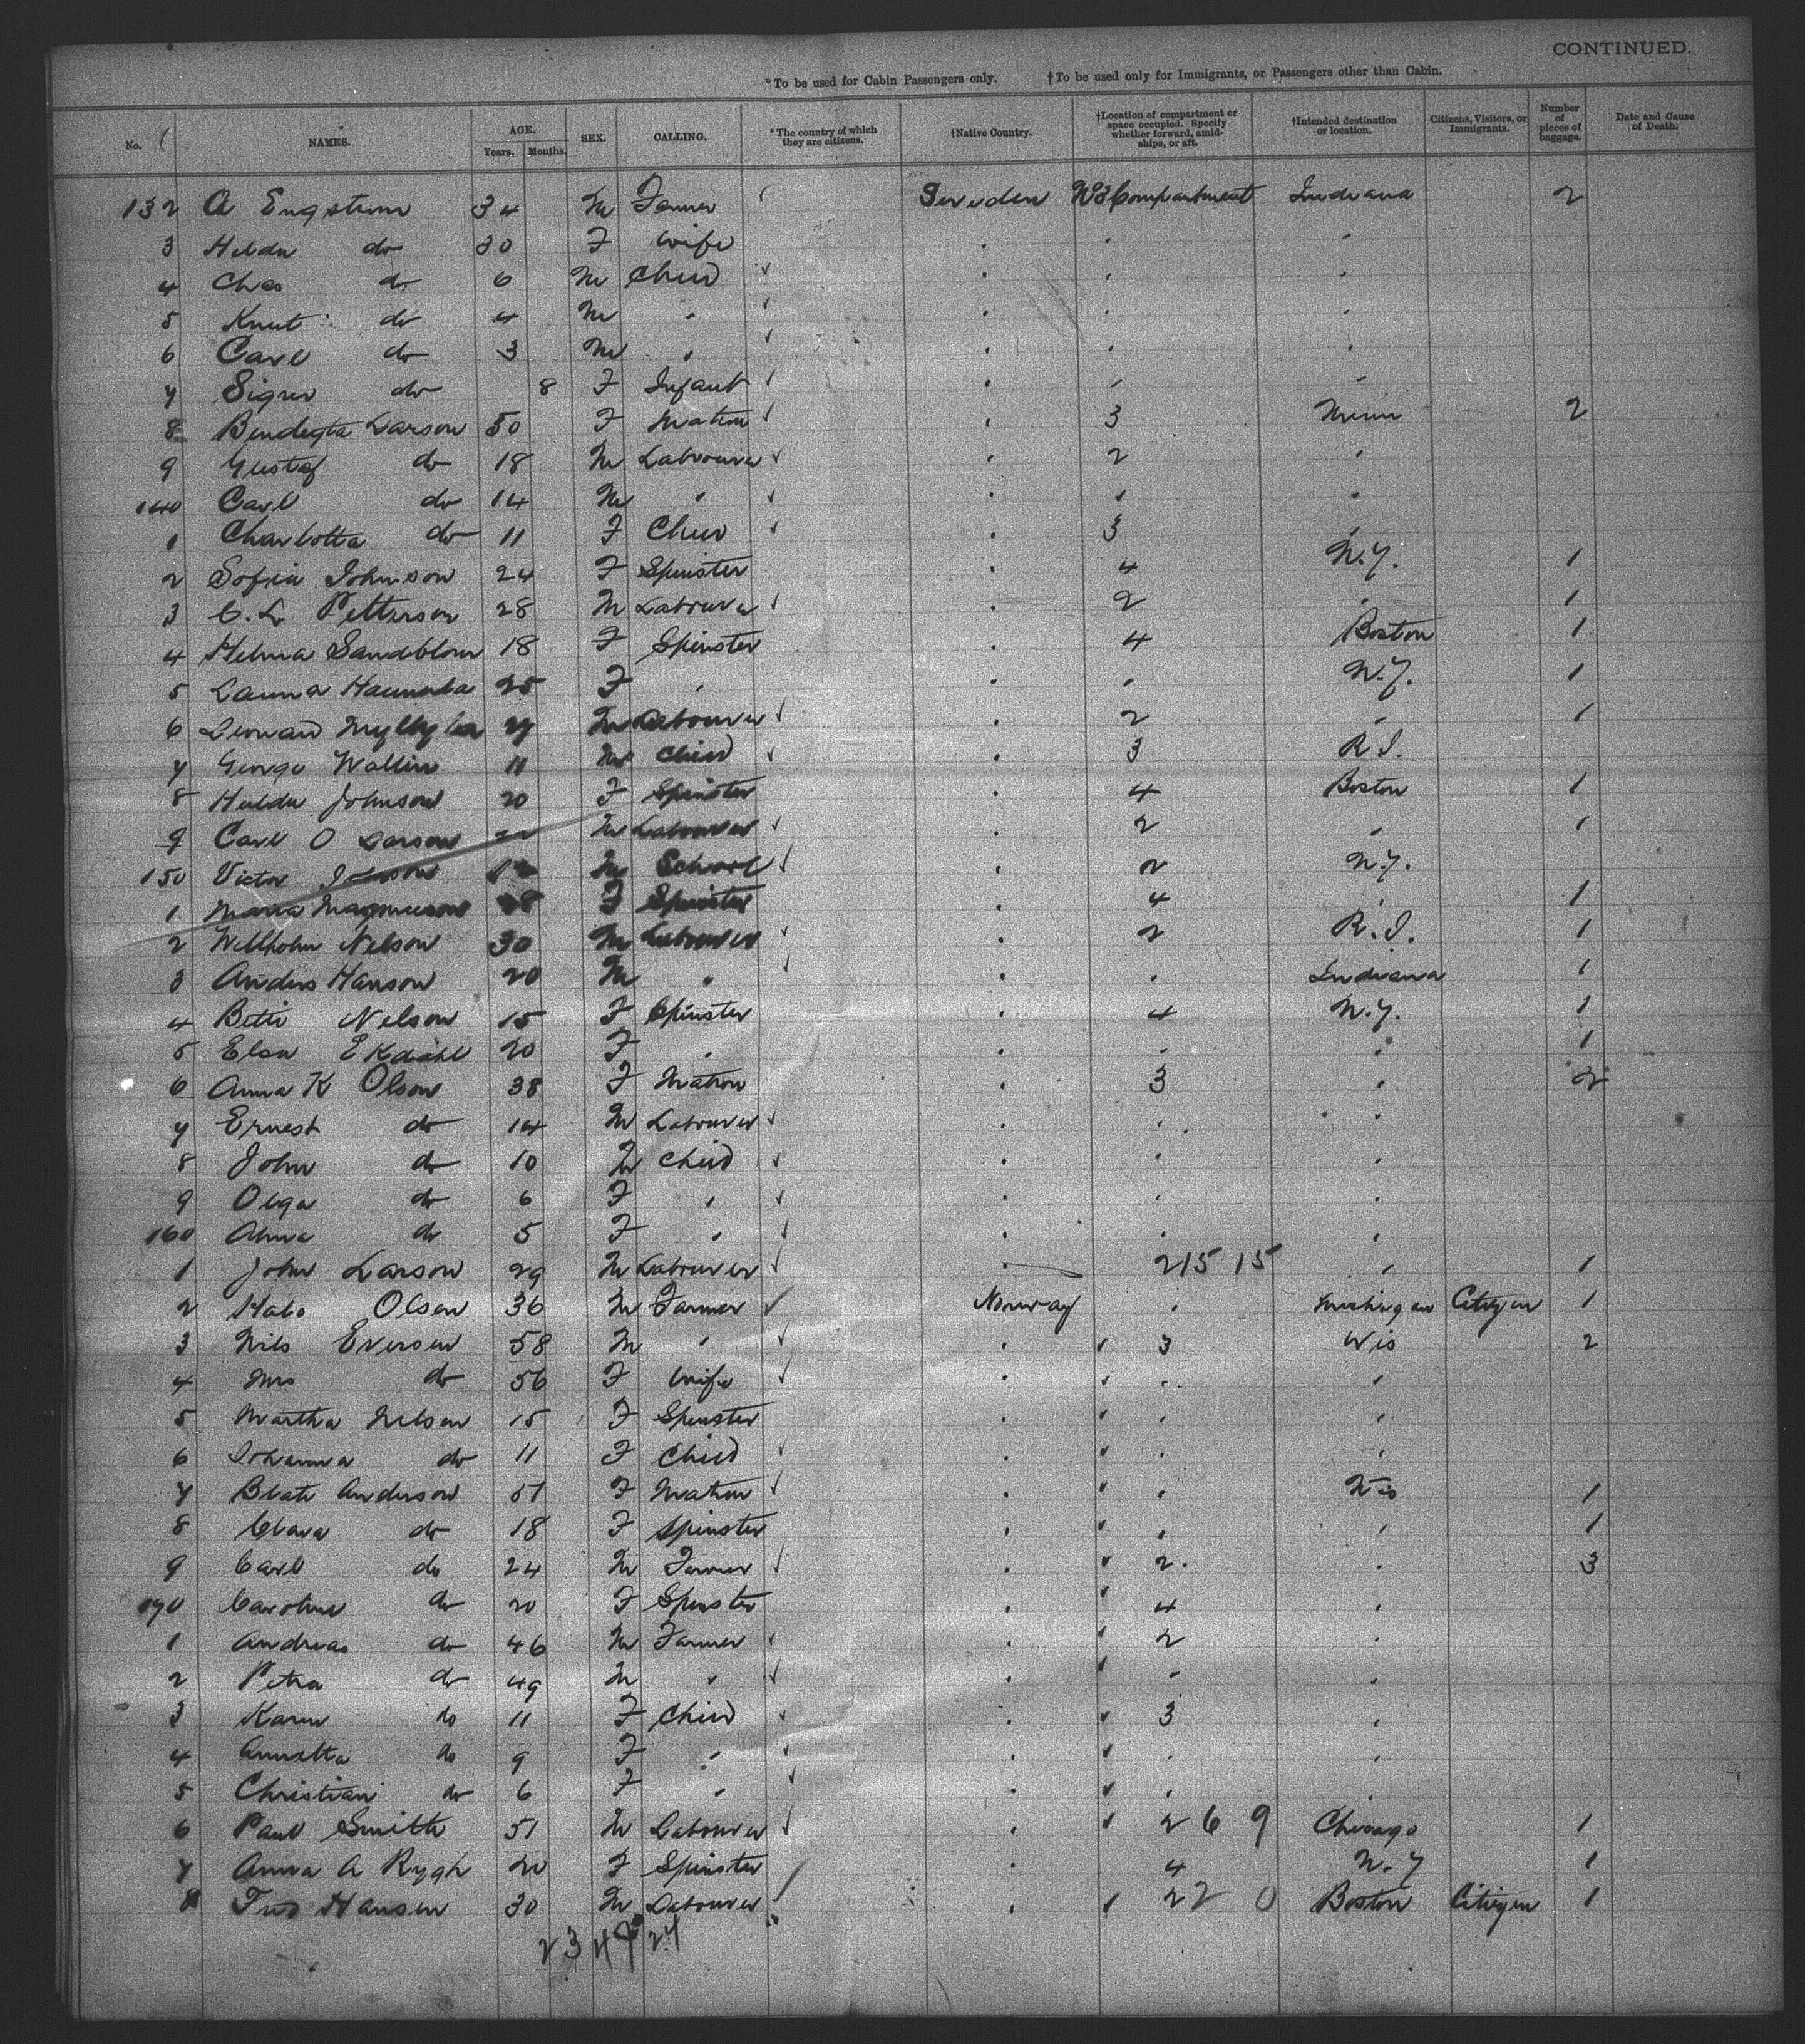 CONTINUED.
*To be used for Cabin Passengers only. †To be used only for Immigrants, or Passengers other than Cabin.
No. NAMES. AGE. Years. Months. SEX. CALLING. *The country of which they are citizens. †Native Country. †Location of compartment or space occupied. Specify whether forward, amidships, or aft. †Intended destination or location. Citizens, Visitors, or Immigrants. Number of pieces of baggage. Date and Cause of Death.
132 A Engstrom 34 M Farmer Sweden No 3 Compartment Indiana 2
3 Hilda do 30 F Wife " " "
4 Chas do 6 M Child " " "
5 Knut do 4 M " " " "
6 Carl do 3 M " " " "
7 do 8 F Infant " " "
8 Larson 50 F Matron " 3 Minn 2
9 Gustaf do 18 M Labourer " 2 "
140 Carl do 14 M " " " "
1 Charlotta do 11 F Child " 3 "
2 Sofia Johnson 24 F Spinster " 4 N.Y. 1
3 C. L. Petterson 28 M Labourer " 2 " 1
4 Helma Sandblom 18 F Spinster " 4 Boston 1
5 25 F " " " N.Y. 1
6 M Labourer " 2 " 1
7 George Wallin 11 M Child " 3 R.I.
8 Hulda Johnson 20 F Spinster " 4 Boston 1
9 Carl O Larson M Labourer " 2 " 1
150 Victor M School " 2 N.Y.
1 Maria Magnuson F Spinster " 4 " 1
2 Willholm Nelson 30 M Labourer " 2 R.I. 1
3 Anders Hanson 20 M " " " Indiana 1
4 Betti Nelson 15 F Spinster " 4 N.Y. 1
5 Elsa Ekdahl 20 F " " " " 1
6 Anna K Olson 38 F Matron " 3 " 2
7 Ernest do 14 M Labourer " " "
8 John do 10 M Child " " "
9 Olga do 6 F " " " "
160 do 5 F " " " "
1 John Larson 29 M Labourer " 2 15 15 " 1
2 Olsen 36 M Farmer Norway " Michigan Citizen 1
3 Nils Eversen 58 M " " 3 Wis 2
4 Mrs do 56 F Wife " " "
5 Martha Nilsen 15 F Spinster " " "
6 Johanna do 11 F Child " " "
7 Anderson 51 F Matron " " Wis 1
8 Clara do 18 F Spinster " " " 1
9 Carl do 24 M Farmer " 2 " 3
170 Caroline do 20 F Spinster " 4 "
1 Andreas do 46 M Farmer " 2 "
2 Petra do 49 M " " " "
3 Karen do 11 F Child " 3 "
4 Annetta do 9 F " " " "
5 Christian do 6 F " " " "
6 Paul Smith 51 M Labourer " 2 6 9 Chicago 1
7 Anna A Rygh 20 F Spinster " 4 N.Y 1
8 Hansen 30 M Labourer " 2 2 0 Boston Citizen 1
23 4 24